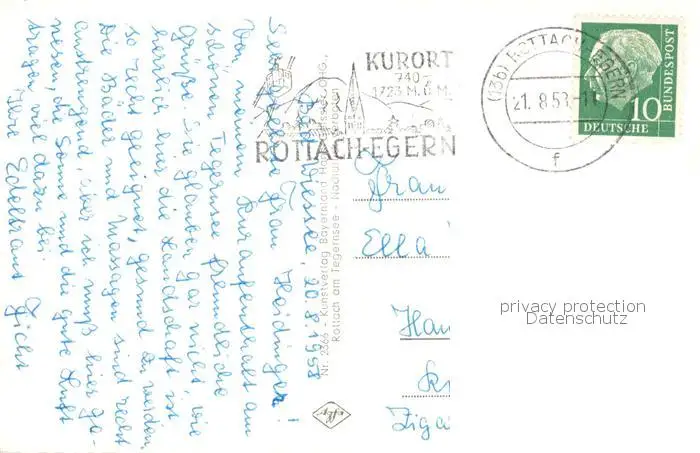 Bad Wiessee, 20.8.1958
Sehr liebe Frau Heidinger!
Von meinem Kuraufenthalt am
schönen Tegernsee freundliche
Grüße. Sie glauben gar nicht, wie
herrlich hier die Landschaft ist
so recht geeignet, gesund zu werden.
Die Bäder und Massagen sind recht
anstrengend, aber ich muß hier ge-
nesen, die Sonne und die gute Luft
tragen viel dazu bei.
Ihre Edeltraut Ficht
Nr. 2369 - Kunstverlag Bayernland
Rottach am Tegernsee
KURORT
740-
1723 M.Ü.M.
ROTTACH-EGERN
(13b) ROTTACH-EGERN
21.8.58.-11
f
10
DEUTSCHE
BUNDESPOST
Frau
Ella
Han
Kr
Ziga
privacy protection
Datenschutz